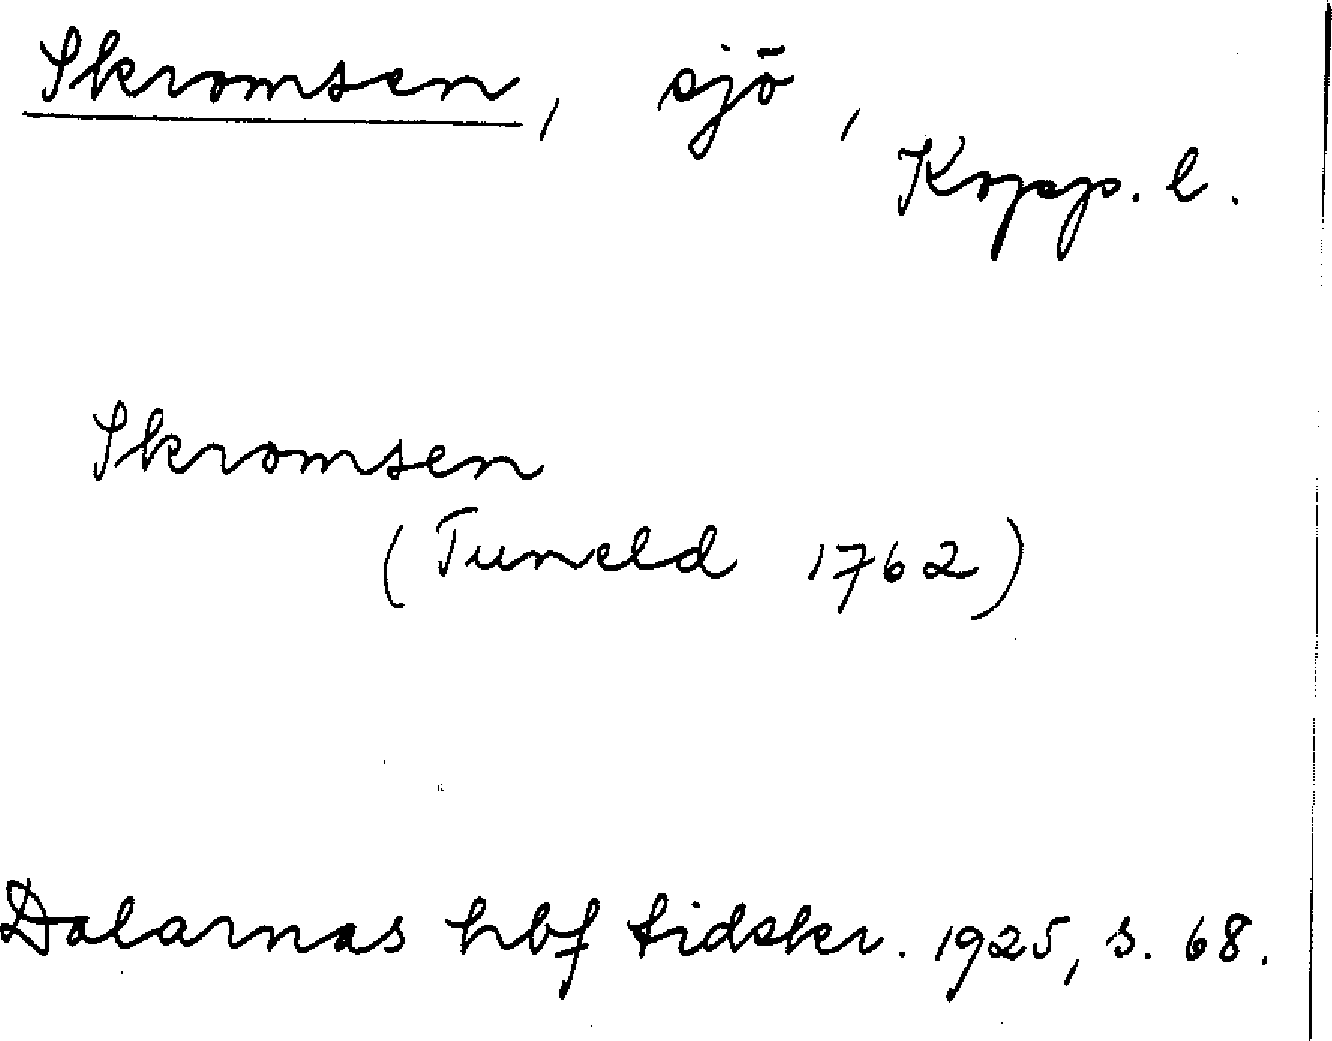 Skromsen, sjö,
Kopp. l.
Skromsen
(Tuneld 1762)
Dalarnas hbf tidskr. 1925, s. 68.